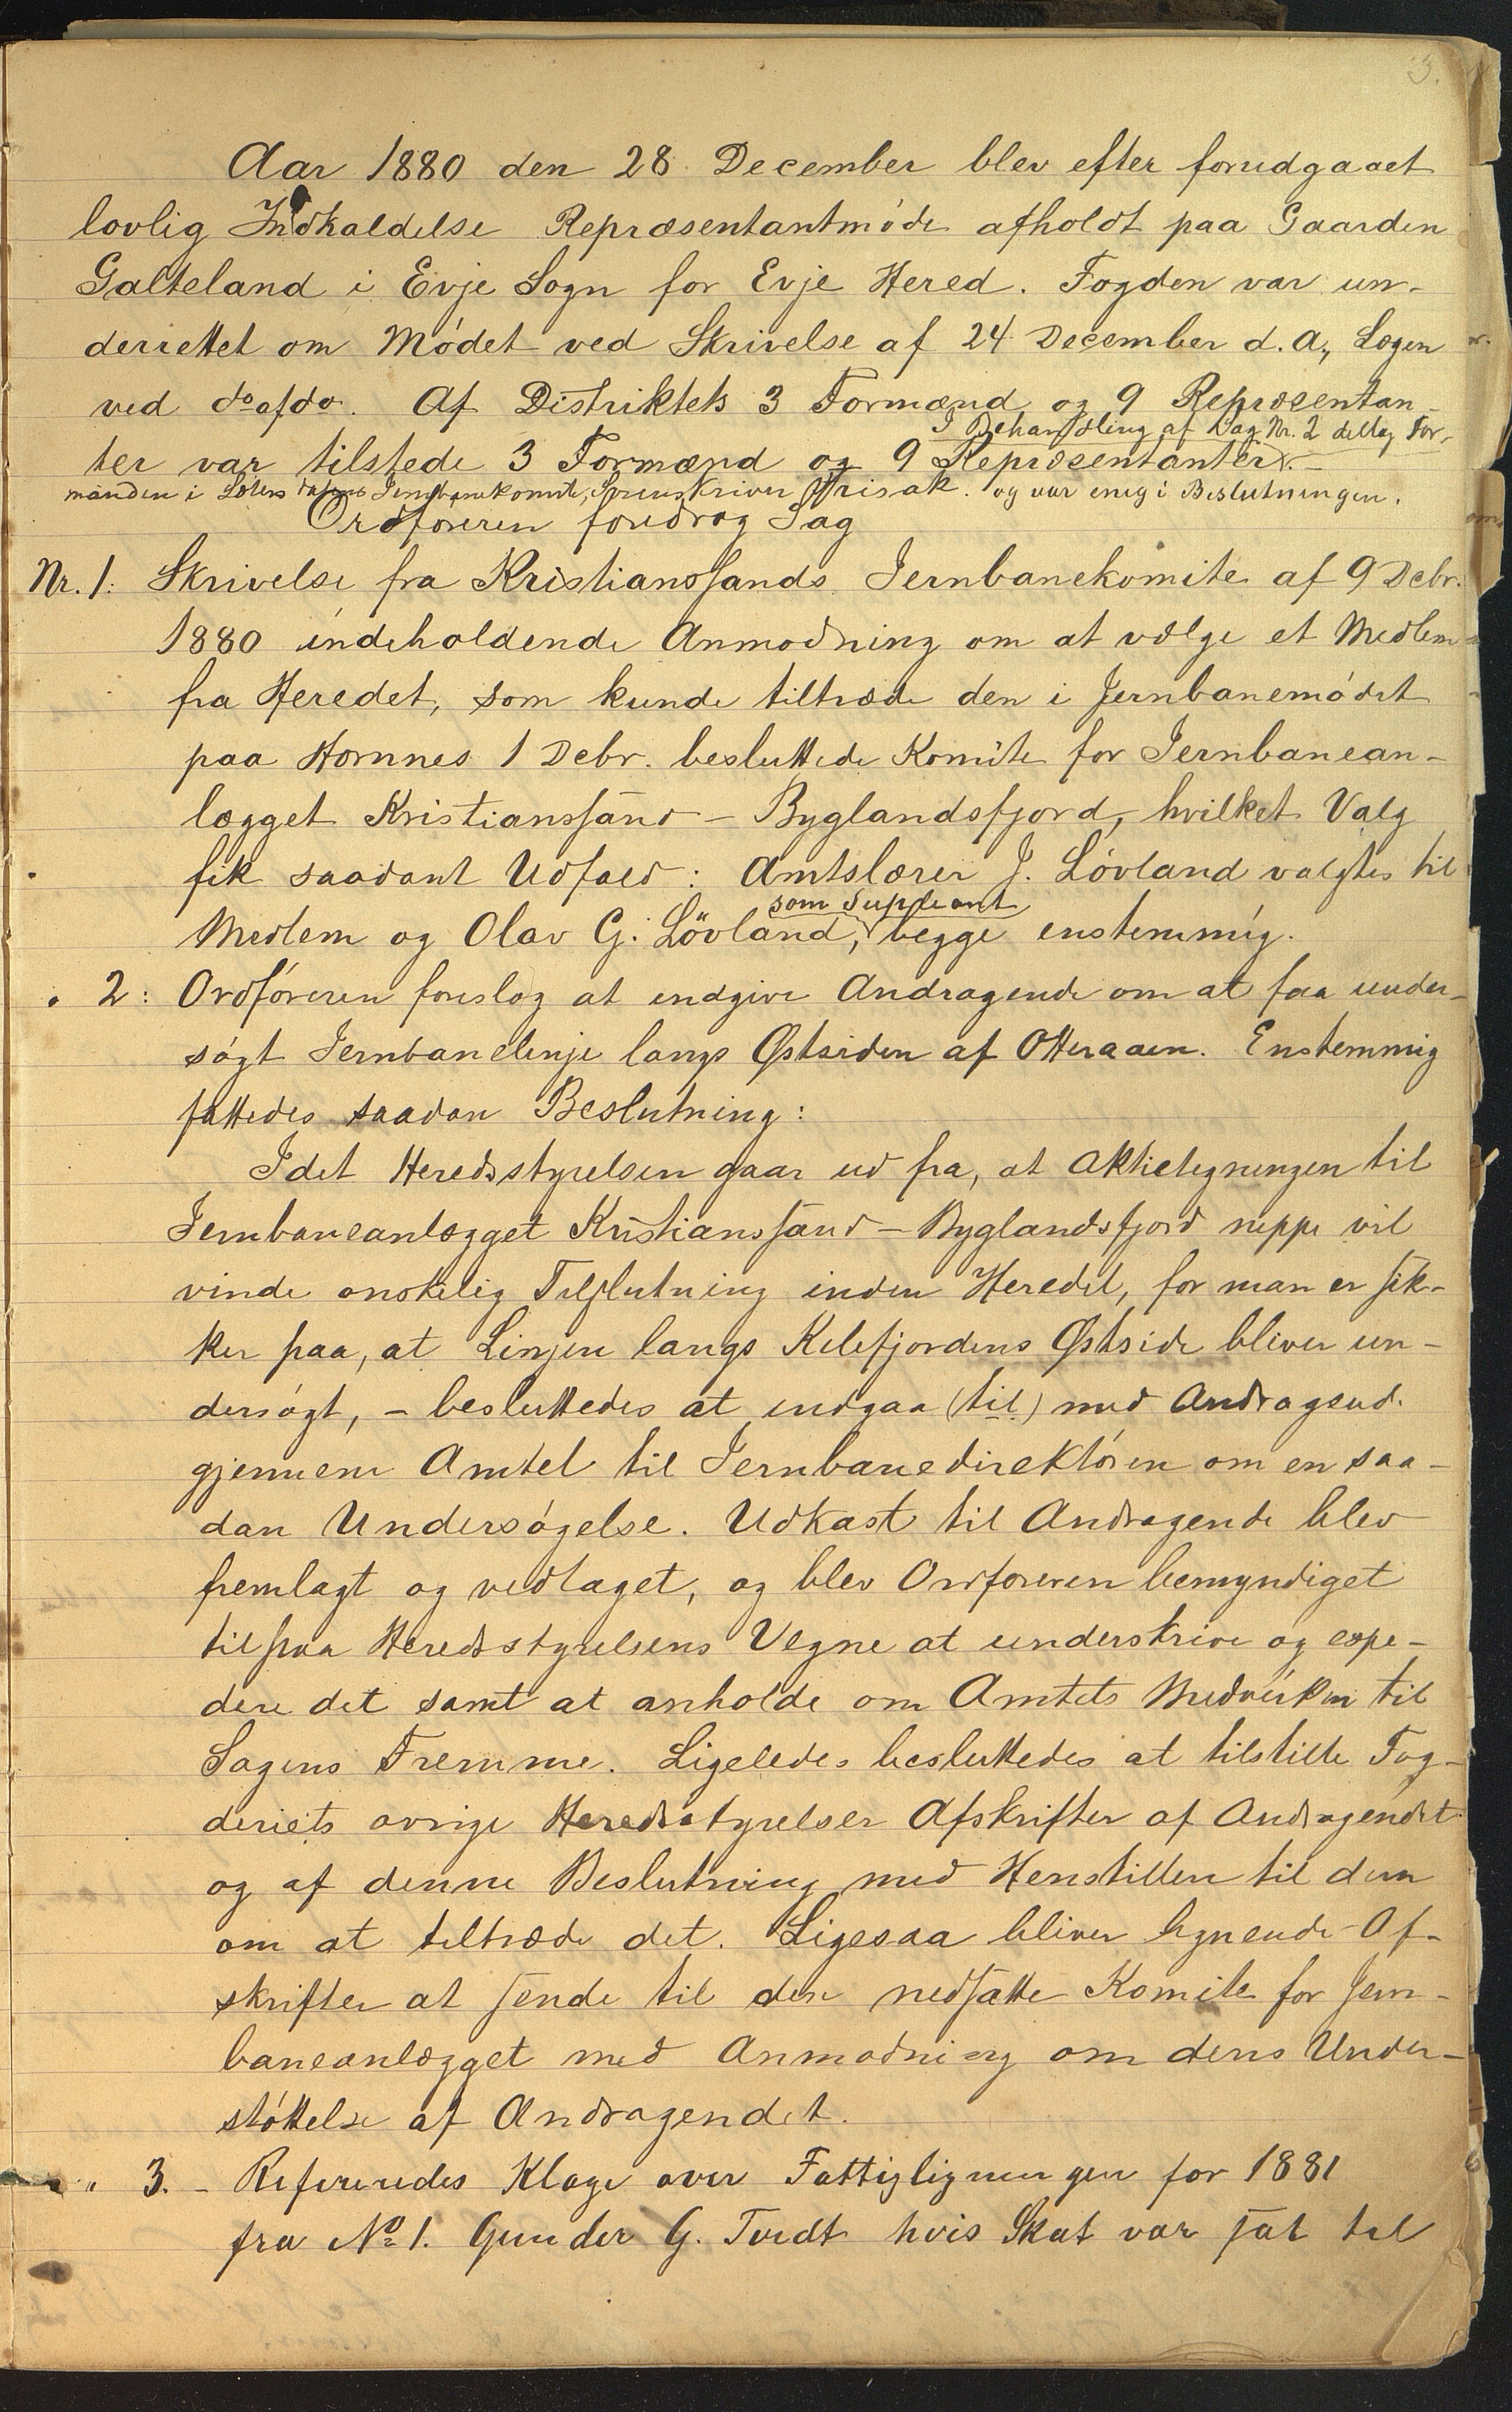 3.
Aar 1880 den 28 December blev efter forudgaaet
lovlig Indkaldelse Repræsentantmøde afholdt paa Gaarden
Galteland i Evje Sogn for Evje Hered. Fogden var un-
derrettet om Mødet ved Skrivelse af 24 December d. A., Lægen
ved do af do. Af Distriktets 3 Formænd og 9 Repræsentan-
I Behandling af Sag Nr. 2 deltog For-
ter var tilstede 3 Formænd og 9 Repræsentanter. -
manden i Sætersdalens Jernbanekomite, Sorenskriver Prisak. og var enig i Beslutningen.
Ordføreren foredrog Sag
Nr. 1: Skrivelse fra Kristianssands Jernbanekomite af 9 Debr.
1880 indeholdende Anmodning om at vælge et Medlem
fra Heredet, som kunde tiltræde den i Jernbanemødet
paa Hornnes 1 Debr. besluttede Komite for Jernbanean-
lægget Kristianssand - Byglandsfjord, hvilket Valg
fik saadant Udfald: Amtslærer J. Lövland valgtes til
som Suppleant
Medlem og Olav G. Lövland, begge enstemmig.
" 2: Ordføreren foreslog at indgive Andragende om at faa under-
søgt Jernbanelinje langs Østsiden af Otteraaen. Enstemmig
fattedes saadan Beslutning:
Idet Heredsstyrelsen gaar ud fra, at Aktietegningen til
Jernbaneanlægget Kristianssand - Byglandsfjord neppe vil
vinde ønskelig Tilslutning inden Heredet, før man er sik-
ker paa, at Linjen langs Kilefjordens Østside bliver un-
dersøgt, - besluttedes at indgaa (til) med Andragend.
gjennem Amtet til Jernbanedirektøren om en saa-
dan Undersøgelse. Udkast til Andragende blev
fremlagt og vedtaget, og blev Ordføreren bemyndiget
til paa Heredsstyrelsens Vegne at underskrive og expe-
dere det samt at anholde om Amtets Medvirken til
Sagens Fremme. Ligeledes besluttedes at tilstille Fog-
deriets øvrige Heredsstyrelser Afskrifter af Andragendet
og af denne Beslutning med Henstillen til dem
om at tiltræde det. Ligesaa bliver lignende Af-
skrifter at sende til den nedsatte Komite for Jern-
baneanlægget med Anmodning om dens Under-
støttelse af Andragendet.
" 3. - Refereredes Klage over Fattigligningen for 1881
fra No 1. Gunder G. Tvedt hvis Skat var sat til